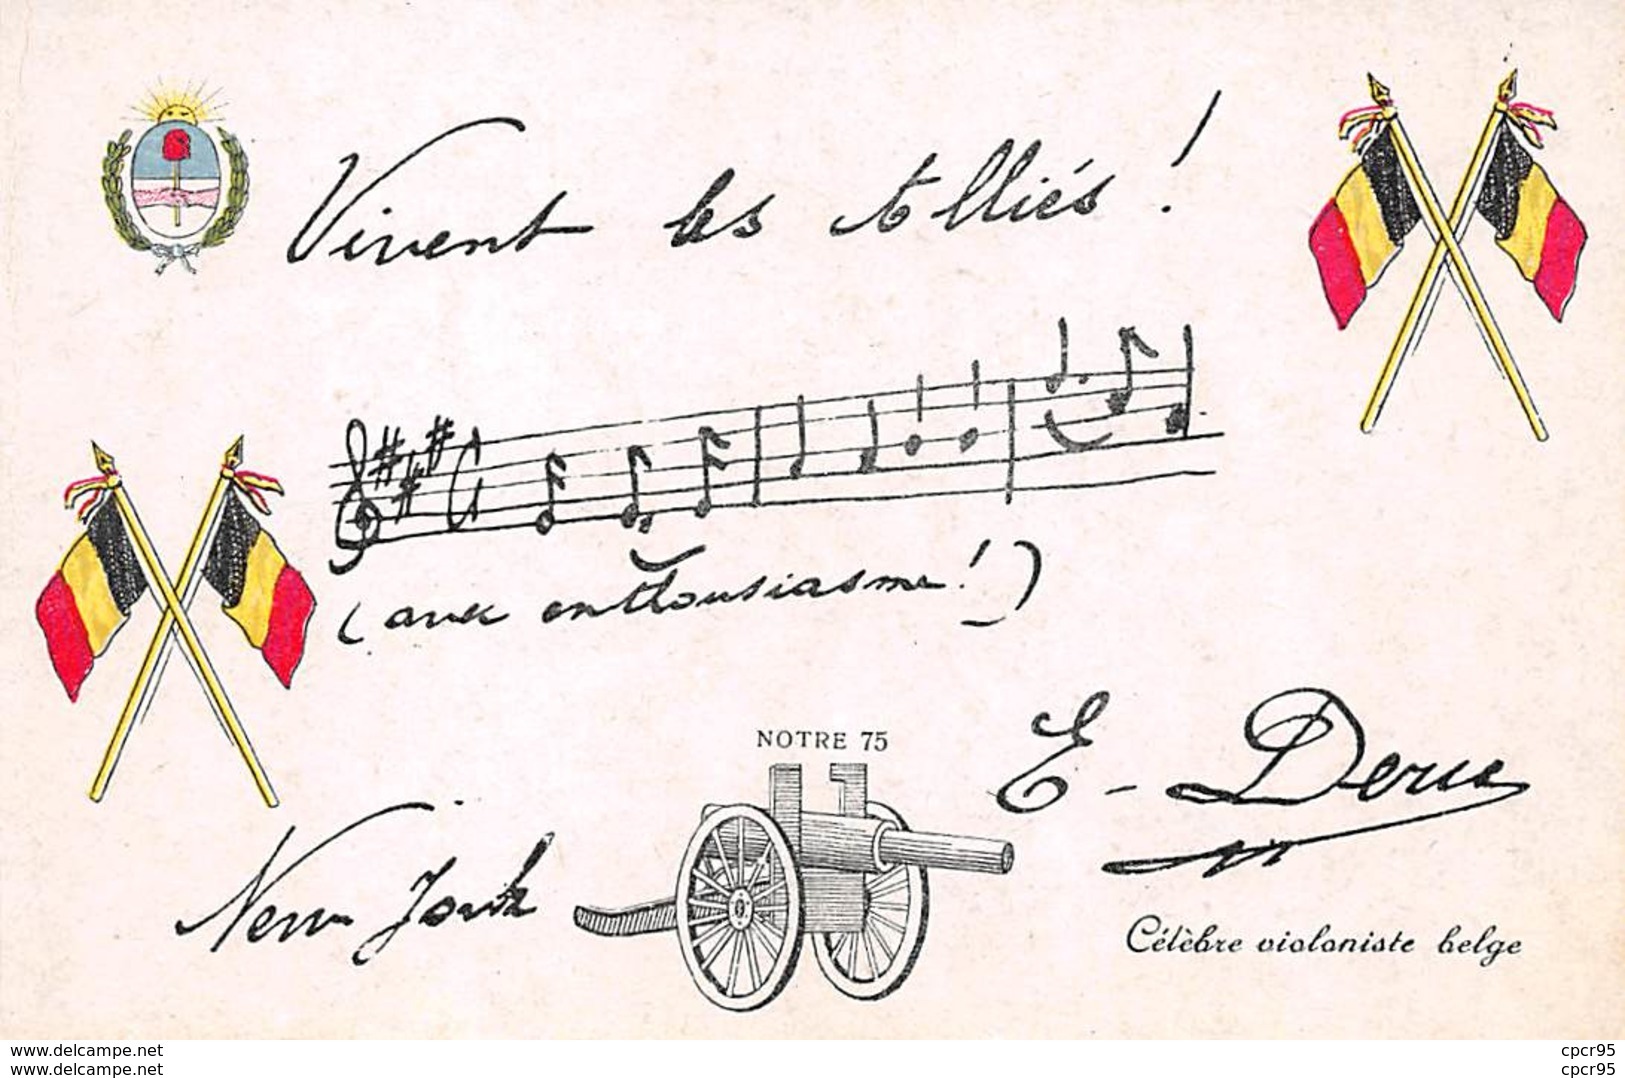 Vivent les Alliés !
(avec enthousiasme !)
NOTRE 75
E - Deru
New York
Célèbre violoniste belge
www.delcampe.net
www.delcampe.net
cpcr95
cpcr95